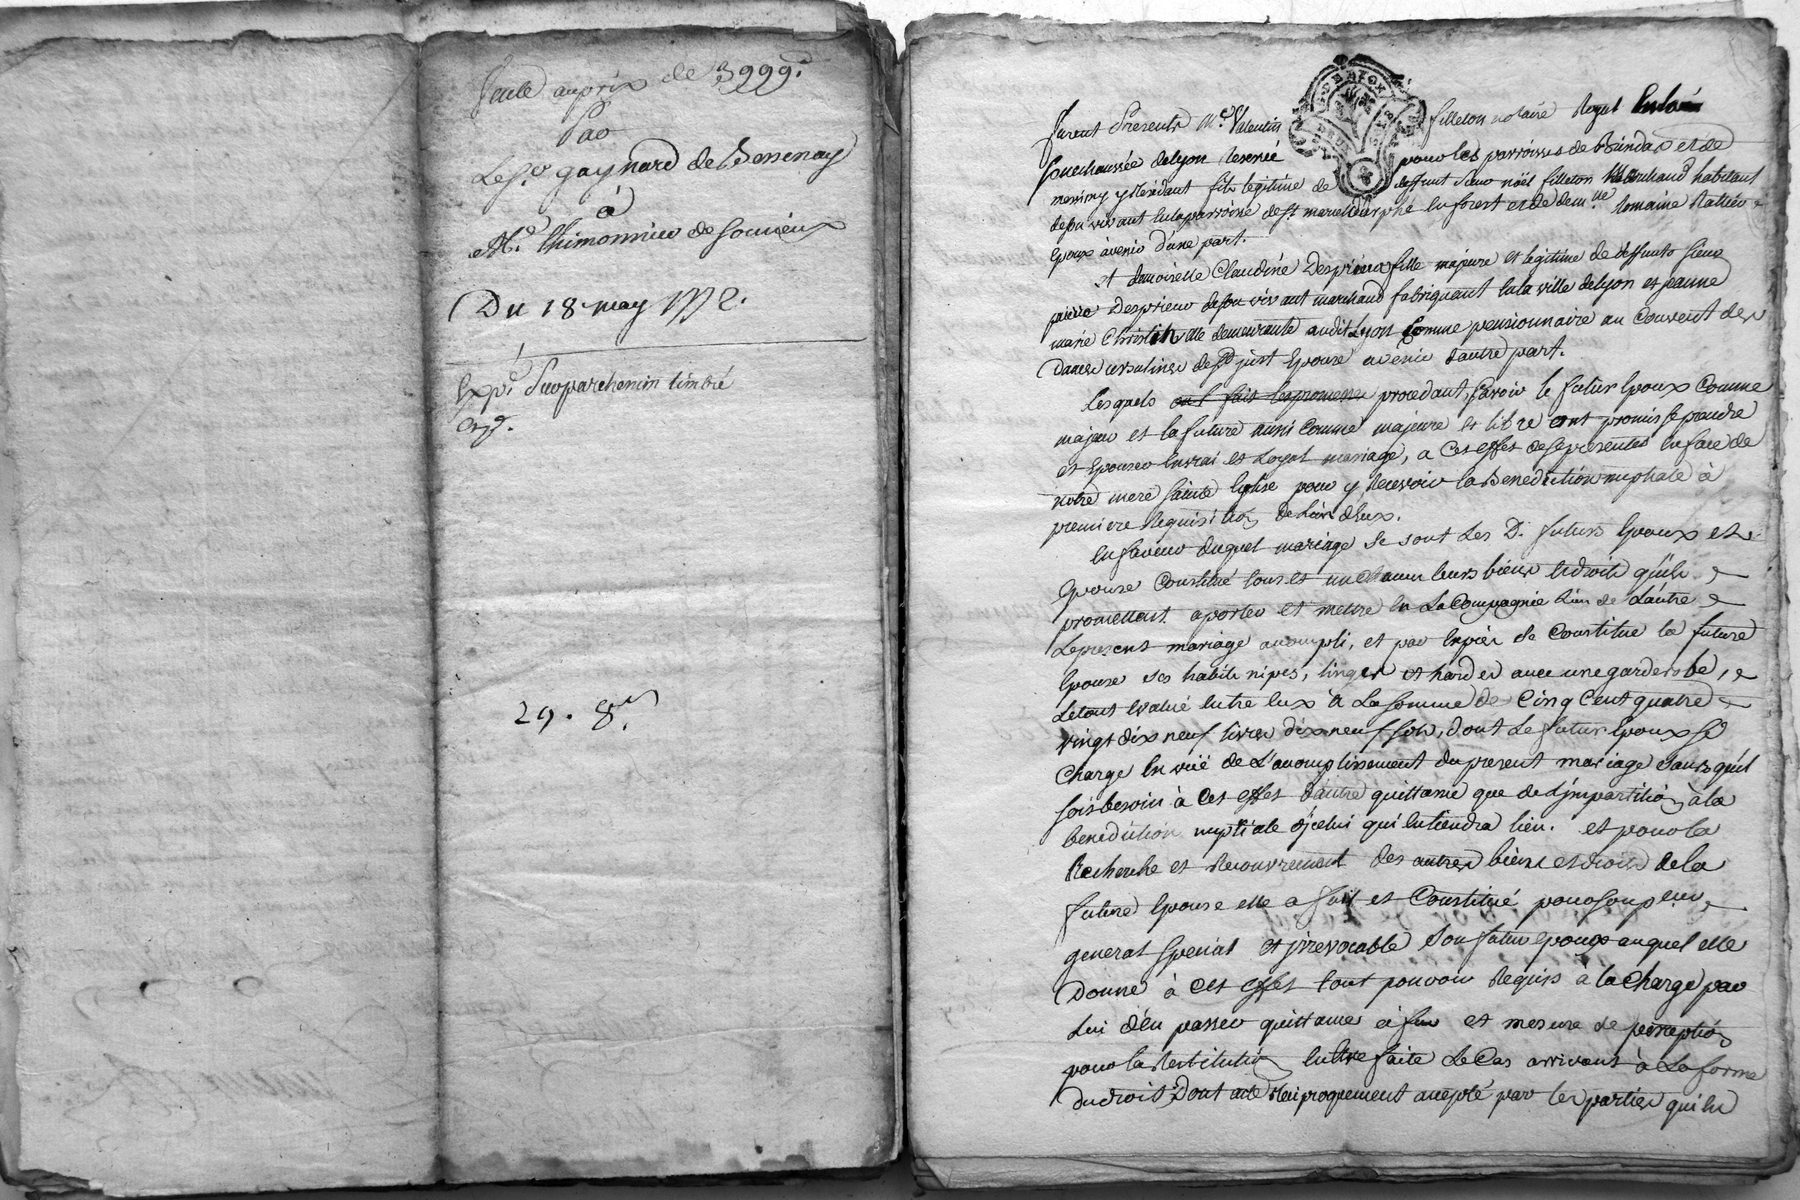 Vente au prix de 3999#
Par
Le Sr. gaynard de Bessenay
à
Mr. Thimonnier de Sourcieux
Du 18 may 1772.
Expé. sur parchemin timbré
29. 8
furent Presents Me. Valentin filleton notaire Royal en la
senechaussée de lyon reservé pour les parroisses de Brindas et de
messimy y residant fils legitime de deffunt sieur noël filleton Marchand habitant
de son vivant en la parroisse de St marcel en forest et de demlle. Romaine
Epoux à venir d'une part.
et demoiselle Claudine Desprieux fille majeure et legitime de deffunts sieur
pierre Desprieux de son vivant marchand fabriquant en la ville de lyon et jeanne
marie Christin elle demeurante audit Lyon comme pensionnaire au Couvent des
Dames ursulines de St just Epouse avenir d'autre part.
Lesquels ont fait les promesses procedant, savoir le futur Epoux Comme
majeur et la future aussi Comme majeure et libre ont promis se prendre
et Epouser en vrai et Loyal mariage, a Cet effet de se presenter en face de
notre mere sainte Eglise pour y recevoir la Benediction nuptiale à
premiere requisition de l'un d'eux.
En faveur duquel mariage se sont Les D. futurs Epoux et
Epouse Constitué tous et un chacun leurs biens et droits qu'ils
promettent aporter et mettre en La Compagnie l'un de L'autre
Le present mariage acompli, et par exprès se Constitue la future
Epouse ses habits nipes, linges et hardes avec une garderobe,
Le tout evalué entre eux à La somme de Cinq Cent quatre
vingt dix neuf livres dix neuf sols, dont Le futur Epoux se
Charge en vuë de L'acomplissement du present mariage sans qu'il
soit besoin à Cet effet d'autre quittance que de L'impartition à la
benediction nuptiale d'jcelui qui en tiendra lieu. et pour la
Recherche et recouvrement des autres biens et droits de la
future Epouse elle a fait et Constitué pour son procureur
general special et jrrevocable son futur epoux auquel elle
Donne à Cet effet tout pouvoir requis à la Charge par
Lui d'en passer quittance à fur et mesure de perception
pour la restitution en etre faite Le Cas arrivant à La forme
du droit, Dont acte reciproquement accepté par les parties qui en